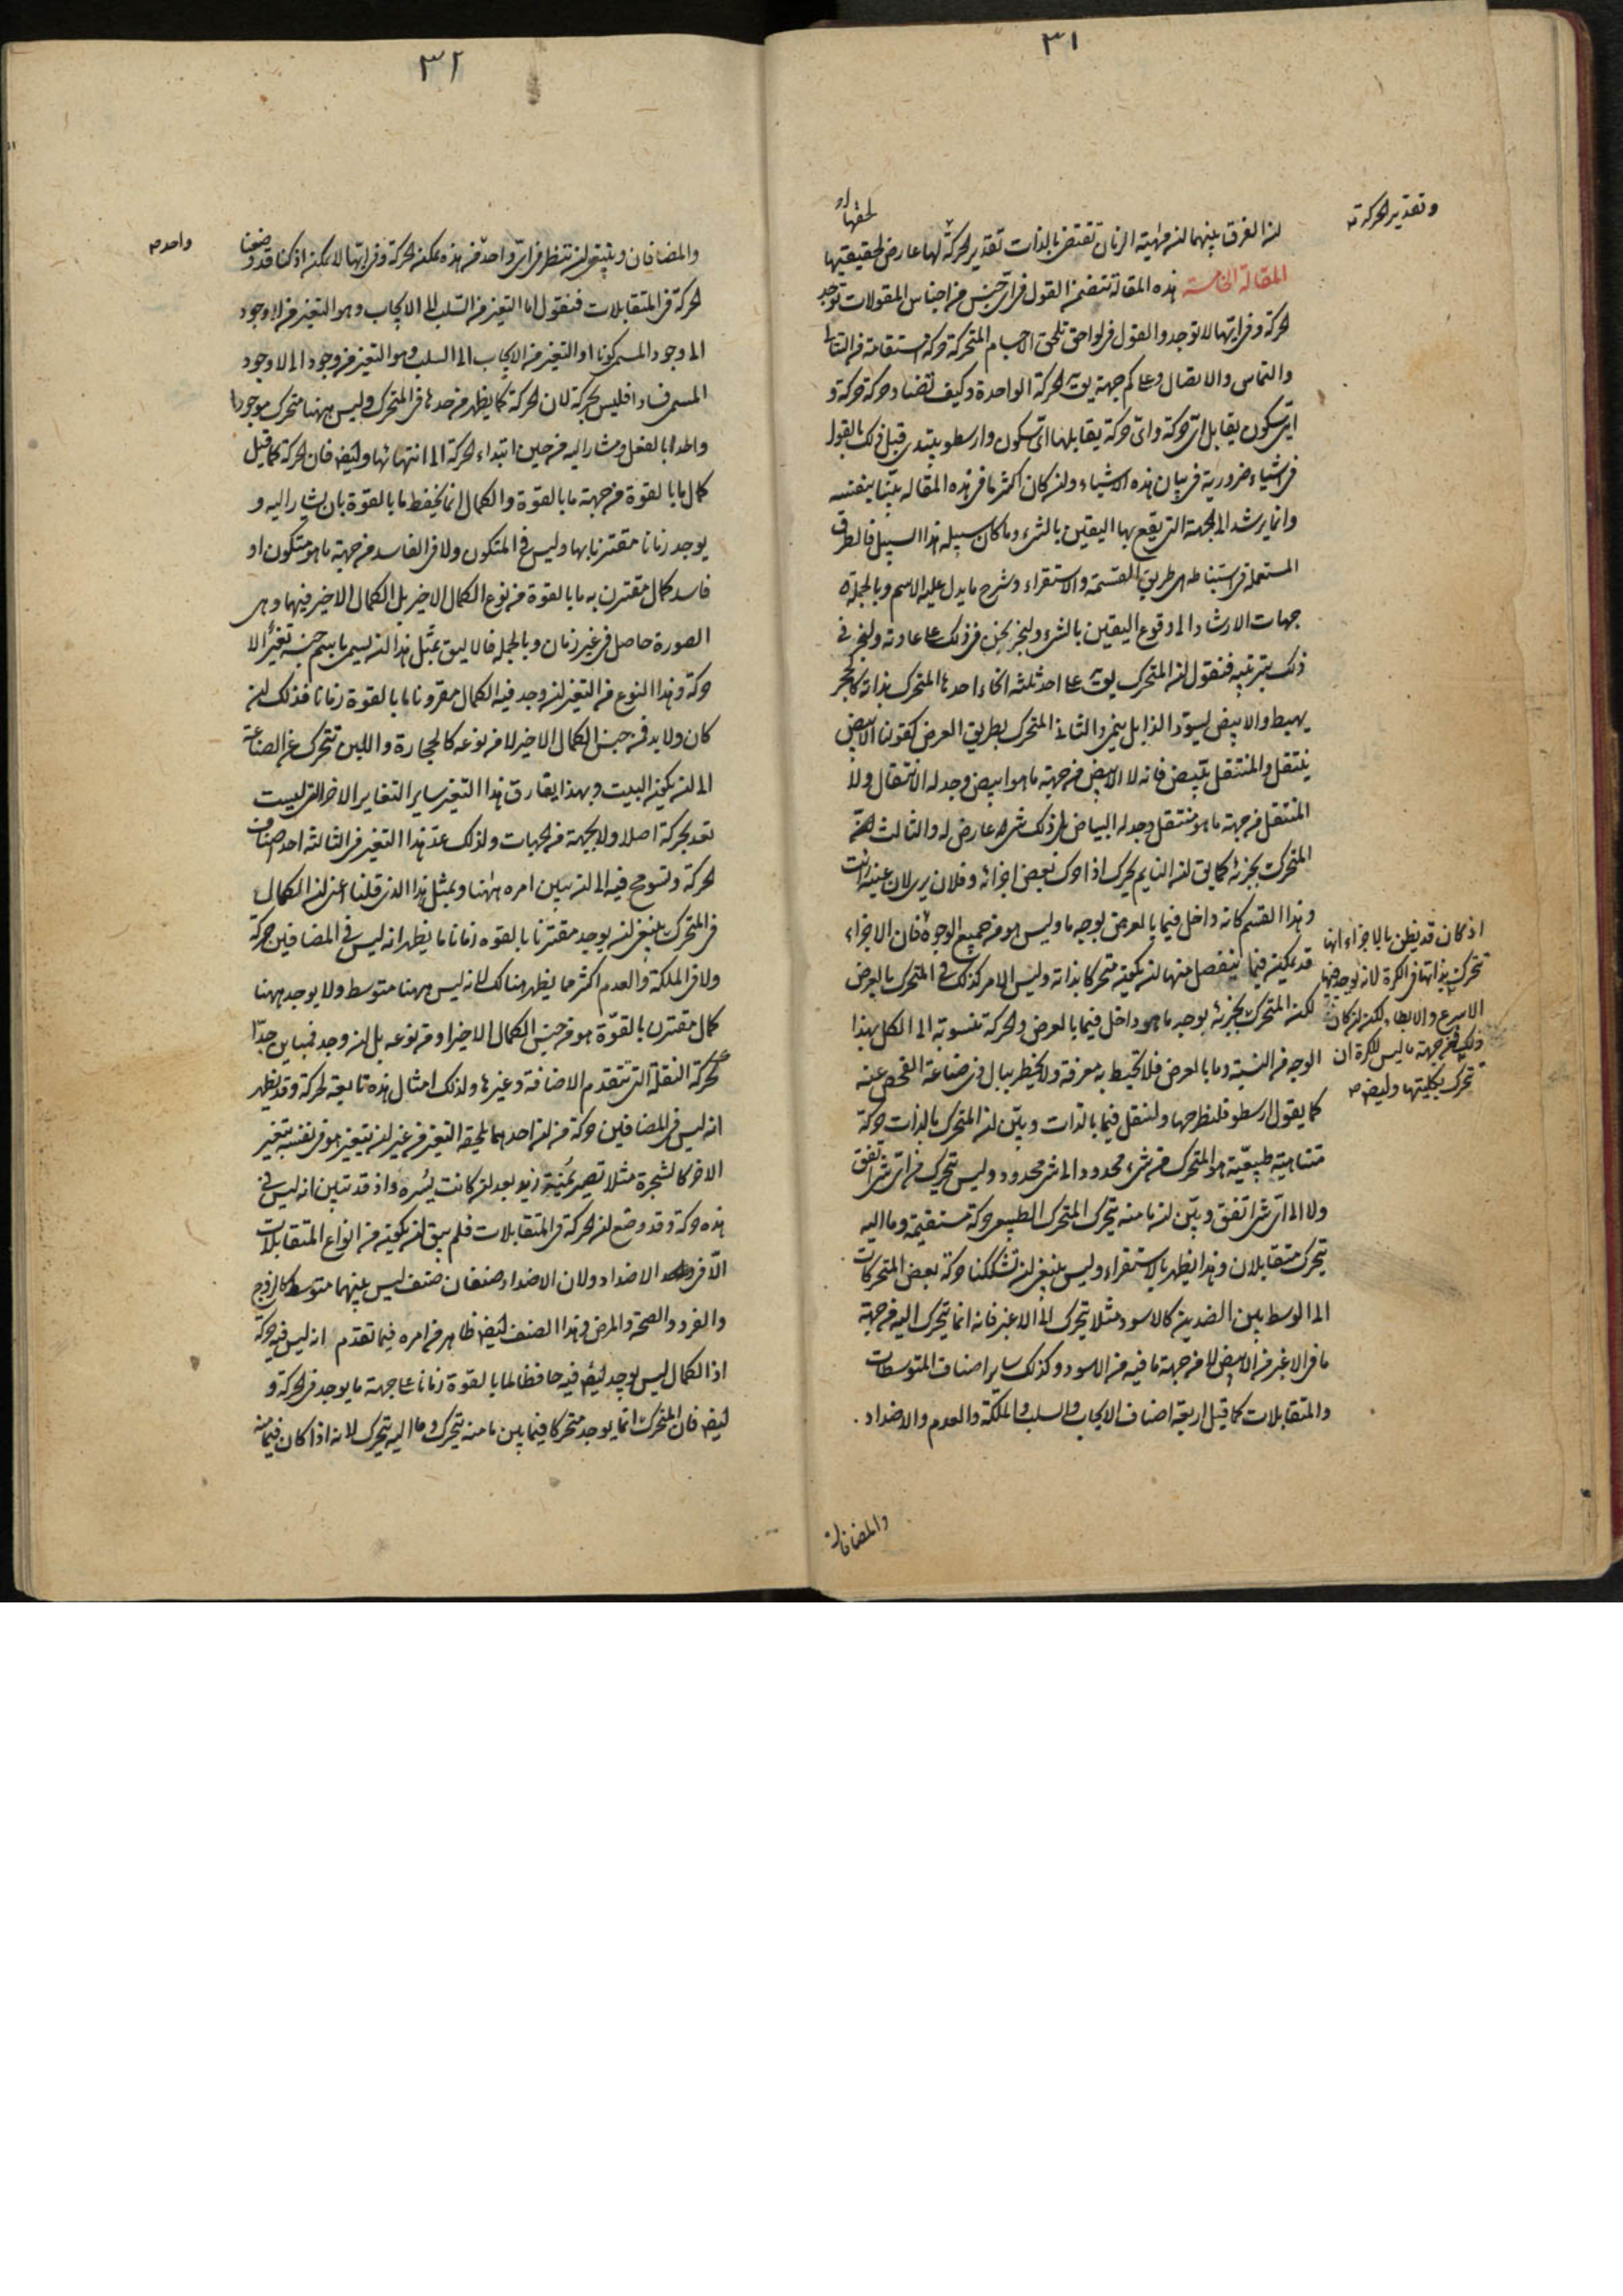 ٣١
وتقدير الحركة
لحقها او
ان الفرق بينهما ان مهية الزمان تقتضى بالذات تقدير الحركة لها عارض لحقيقتيها
المقالة الخامسة هذه المقالة تتضمن القول فى اى جنس من اجناس المقولات توجد
الحركة وفى ايها لا توجد والقول فى لواحق تلحق الاجسام المتحركة حركة مستقامة من التتالى
والتماس والاتصال وعلى كم جهة يق الحركة الواحدة وكيف تضاد حركة حركة و
اى سكون يقابل اى حركة واى حركة يقابلها اى سكون وارسطو يبتدى قبل ذلك بالقول
فى اشياء ضرورية فى بيان هذه الاشياء وان كان اكثر ما فى هذه المقاله بينا بنفسه
وانما يرشد الى الجهة التى يقع بها اليقين بالشىء وما كان سبيله هذا السبيل فالطرق
المستعملة فى استنباطه هى طريق القسمة والاستقراء وشرح ما يدل عليه الاسم وبالجملة
جهات الارشاد الى وقوع اليقين بالشىء ولنجر نحن فى ذلك على عادته ولنجر فى
ذلك بترتيبه فنقول ان المتحرك يق على احد ثلثة انحاء احدها المتحرك بذاته كالحجر
يهبط والابيض يسود والذابل ينمى والثانى المتحرك بطريق العرض كقولنا الابيض
ينتقل والمنتقل يبيض فانه لا الابيض من جهة ما هو ابيض وجد له الانتقال ولا
المنتقل من جهة ما هو منتقل وجد له البياض بل ذلك شىء عارض له والثالث
المتحرك بجزئه كما يق ان النايم يحرك اذا حرك بعض اجزائه وفلان يرى لان عينه رأت
وهذا القسم كانه داخل فيما بالعرض بوجه ما وليس هو من جميع الوجوه فان الاجزاء
قد يمكن فيما ينفصل منها ان يكون متحركا بذاته وليس الامر كذلك فى المتحرك بالعرض
لكن المتحرك بجزئه بوجه ما هو داخل فيما بالعرض والحركة منسوبة الى الكل بهذا
الوجه من النسبة وما بالعرض فلا تحيط به معرفة ولا يخطر ببال ذى صناعة الفحص عنه
كما يقول ارسطو فلنطرحها ولنقل فيما بالذات وبين ان المتحرك بالذات حركة
متناهية طبيعية هو المتحرك من شىء محدود الى شىء محدود وليس يتحرك من اى شىء اتفق
ولا الى اى شىء اتفق وبين ان ما منه يتحرك المتحرك الطبيعى حركة مستقيمة وما اليه
يتحرك متقابلان وهذا يظهر بالاستقراء وليس ينبغى ان تشككنا حركة بعض المتحركات
الى الوسط بين الضدين كالاسود مثلا يتحرك الى الاغبر فانه انما يتحرك اليه من جهة
ما فى الاغبر من الابيض لا من جهة ما فيه من الاسود وكذلك ساير اصناف المتوسطات
والمتقابلات كما قيل اربعة اصناف الايجاب والسلب والملكة والعدم والاضداد
اذ كان قد يظن بالاجزاء انها
تتحرك بذاتها فى الكرة لانه يوجد فيها
الاسرع والابطا ولكن ان كان
ذلك فمن جهة ما ليس للكرة ان
تتحرك بكليتها وايض
والمضافان
٣٢
واحد
والمضافان وينبغى ان ننظر فى اى واحد من هذه يمكن الحركة وفى ايها لا يمكن اذ كنا قد وضعنا
الحركة فى المتقابلات فنقول اما التغير من السلب الى الايجاب وهو التغير من لا وجود
الى وجود المسمى كونا او التغير من الايجاب الى السلب وهو التغير من وجود الى لا وجود
المسمى فسادا فليس بحركة لان الحركة كما يظهر من حدها فى المتحرك وليس ههنا متحرك موجود
واحدا بالفعل ومشار اليه من حين ابتداء الحركة الى انتهائها وايض فان الحركة كما قيل
كمال ما بالقوة من جهة ما بالقوة والكمال انما يحفظ ما بالقوة بان يشار اليه و
يوجد زمانا مقترنا بها وليس فى المتكون ولا فى الفاسد من جهة ما هو متكون او
فاسد كمال مقترن به ما بالقوة من نوع الكمال الاخير بل الكمال الاخير فيهما وهى
الصورة حاصل فى غير زمان وبالجملة فالاليق بمثل هذا ان يسمى تغيرا لا
حركة وهذا النوع من التغير ان وجد فيه الكمال مقرونا ما بالقوة زمانا فذلك ان
كان ولا بد فى جنس الكمال الاخير لا من نوعه كالحجارة واللبن تتحرك عن الصناعة
الى ان يكون البيت وبهذا يفارق هذا التغير ساير التغايير الاخر التى ليست
تعد بحركة اصلا ولا بجهة من الجهات ولذلك عد هذا التغير فى الثالثة احد اصناف
الحركة وتسومح فيه الى ان يبين امره ههنا وبمثل هذا الذى قلنا اعنى ان الكمال
فى المتحرك ينبغى ان يوجد مقترنا بالقوه زمانا ما يظهر انه ليس فى المضافين حركة
ولا فى الملكة والعدم اكثر مما يظهر هنالك لانه ليس ههنا متوسط ولا يوجد ههنا
كمال مقترن بالقوة هو من جنس الكمال الاخير او من نوعه بل ان وجد فمباين جدا
كحركة النقلة التى تتقدم الاضافة وغيرها ولذلك امثال هذه تابعة لحركة وقد يظهر
انه ليس فى المضافين حركة من ان احدهما يلحقه التغير من غير ان يتغير هو فى نفسه بتغير
الاخر كالشجرة مثلا تصير يمنة زيد بعد ان كانت يسره واذ قد تبين انه ليس فى
هذه حركة وقد وضع ان الحركة فى المتقابلات فلم يبق ان يكون من انواع المتقابلات
الا فى الاضداد ولان الاضداد صنفان صنف ليس بينهما متوسط كالزوج
والفرد والصحة والمرض وهذا الصنف ايض ظاهر من امره فيما تقدم انه ليس فيه حركة
اذ الكمال ليس يوجد ايض فيه حافظا لما بالقوة زمانا على جهة ما يوجد فى الحركة و
ايض فان المتحرك انما يوجد متحركا فيما بين ما منه يتحرك وما اليه يتحرك لانه اذا كان فيما منه